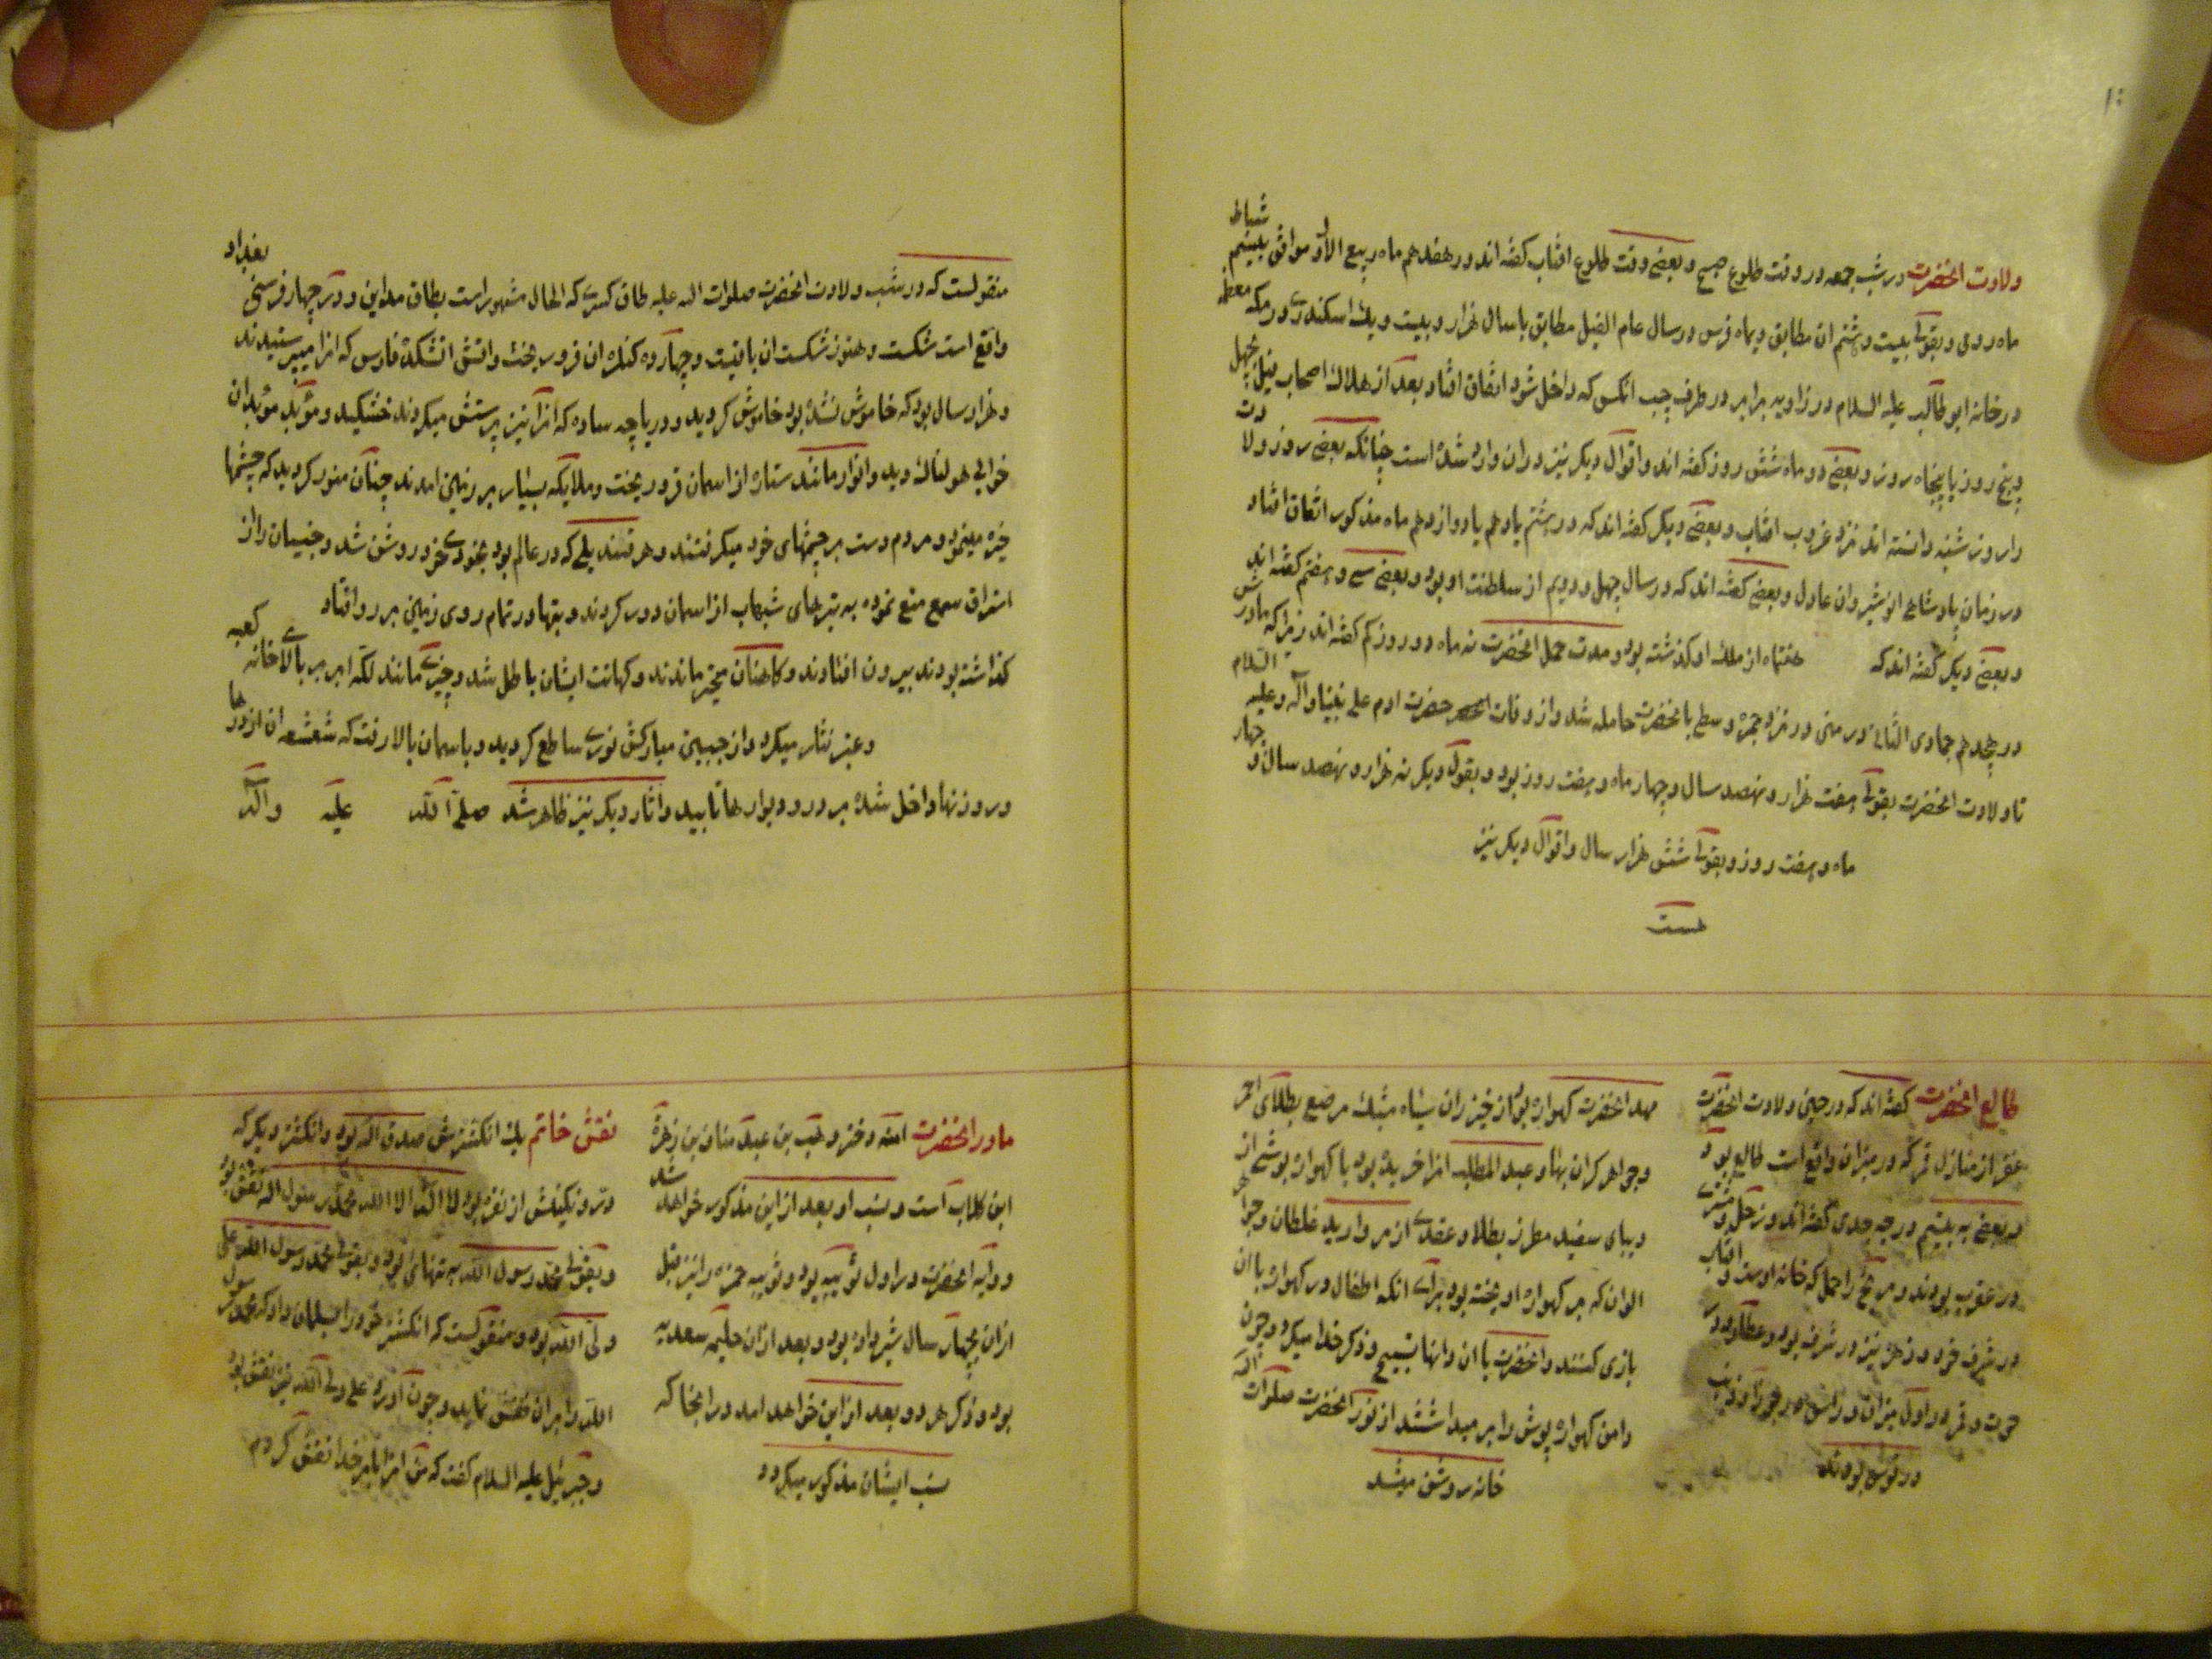 ولادت انحضرت در شب جمعه در وقت طلوع صبح و بعضی وقت طلوع افتاب کفته اند در هفدهم ماه ربیع الاول موافق بیستم شباط
ماه رومی و بقولی بیست و هشتم ان مطابق دیماه فرس در سال عام الفیل مطابق با سال هزار و بیست و یک اسکندری در مکه معظمه
در خانه ابو طالب علیه السلام در زاویه برابر در طرف چپ انکس که داخل شود اتفاق افتاد بعد از هلاک اصحاب فیل بچهل
و پنج روز یا پنجاه روز و بعضی دو ماه شش روز کفته اند و اقوال دیکر نیز در ان وارد شده است چنانکه بعضی روز ولادت
را روز شنبه دانسته اند نزد غروب افتاب و بعضی دیکر کفته اند که در هشتم یا دهم یا دوازدهم ماه مذکور اتفاق افتاد
در زمان پادشاهی انوشیروان عادل و بعضی کفته اند که در سال چهل و دویم از سلطنت او بود و بعضی سی و هفتم کفته اند
و بعضی دیکر کفته اند که هفتماه از ملک او کذشته بود و مدت حمل انحضرت نه ماه دو روز کم کفته اند زیرا که مادرش
در هجدهم جمادی الثانی در منی در نزد جمره وسطی بانحضرت حامله شد و از وفات حضرت ادم علی نبینا و آله و علیه السلام
تا ولادت انحضرت بقولی هفت هزار و نهصد سال و چهار ماه و هفت روز بود و بقول دیکر نه هزار و نهصد سال و چهار
ماه و هفت روز و بقولی شش هزار سال و اقوال دیکر نیز
هست
طالع انحضرت کفته اند که در حین ولادت انحضرت
غفر از منازل قمر که در میزان واقع است طالع بود
و بعضی به بیستم درجه جدی کفته اند و زحل و مشتری
در عقرب بودند و مریخ در حمل که خانه اوست و افتاب
در شرف خود و زهره نیز در شرف بود و عطارد در
حوت و قمر در اول میزان و راس در جوزا و ذنب
در قوس بودند
مهد انحضرت کهواره بود از خیزران سیاه مشبک مرصع بطلای احمر
و جواهر کران بها و عبد المطلب انرا خریده بود با کهواره پوشی از
دیبای سفید مطرز بطلا و عقدی از مروارید غلطان و جواهر
الوان که بر کهواره اویخته بود برای انکه اطفال در کهواره با ان
بازی کنند و انحضرت با ان دانها تسبیح و ذکر خدا میکرد و چون
دامن کهواره پوش را بر میداشتند از نور انحضرت صلوات الله
خانه روشن میشد
منقولست که در شب ولادت انحضرت صلوات الله علیه طاق کسری که الحال مشهور است بطاق مداین و در چهار فرسخی بغداد
واقع است شکست و هنوز شکست ان باقیست و چهارده کنکره ان فرو ریخت و اتش اتشکده فارس که انرا میپرستیدند
و هزار سال بود که خاموش نشده بود خاموش کردید و دریاچه ساوه که انرا نیز پرستش میکردند خشکید و موبد موبدان
خوابی هولناک دید و انوار مانند ستاره از اسمان فرو ریخت و ملایکه بسیار بر زمین امدند چنان منور کردید که چشمها
خیره مینمود و مردم دست بر چشمهای خود میکرفتند و هر قندیلی که در عالم بود بخودی خود روشن شد و جنیان را از
استراق سمع منع نموده به تیرهای شهاب از اسمان دور کردند و بتها در تمام روی زمین بر رو افتاد
کذاشته بودند بیرون افتادند و کاهنان متحیر ماندند و کهانت ایشان باطل شد و چیزی مانند لکه ابر بر بالای خانه کعبه
و عنبر نثار میکرد و از جبین مبارکش نوری ساطع کردید و باسمان بالا رفت که شعشعه ان از درها
و روزنها داخل شده بر در و دیوارها تابید و اثار دیکر نیز ظاهر شد صلی الله علیه و اله
مادر انحضرت امنه دختر وهب بن عبد مناف بن زهره
ابن کلاب است و نسب او بعد از این مذکور خواهد شد
و دایه انحضرت در اول ثویبه بود و ثویبه حمزه را نیز قبل
از ان بچهار سال شیر داده بود و بعد از ان حلیمه سعدیه
بود و ذکر هر دو بعد از این خواهد امد در انجا که
نسب ایشان مذکور میکردد
نقش خاتم یک انکشترش صدق الله بود و انکشتر دیکر که
در و نکینش از نقره بود لا اله الا الله محمد رسول الله نقش بود
و بقولی محمد رسول الله به تنهائی بود و بقولی محمد رسول الله علی
ولی الله بود و منقولست که انکشتر خود را بسلمان داد که محمد رسول
الله را بر ان نقش نماید و چون آورد علی ولی الله نیز نقش بود
و جبرئیل علیه السلام کفت که من انرا بامر خدا نقش کردم